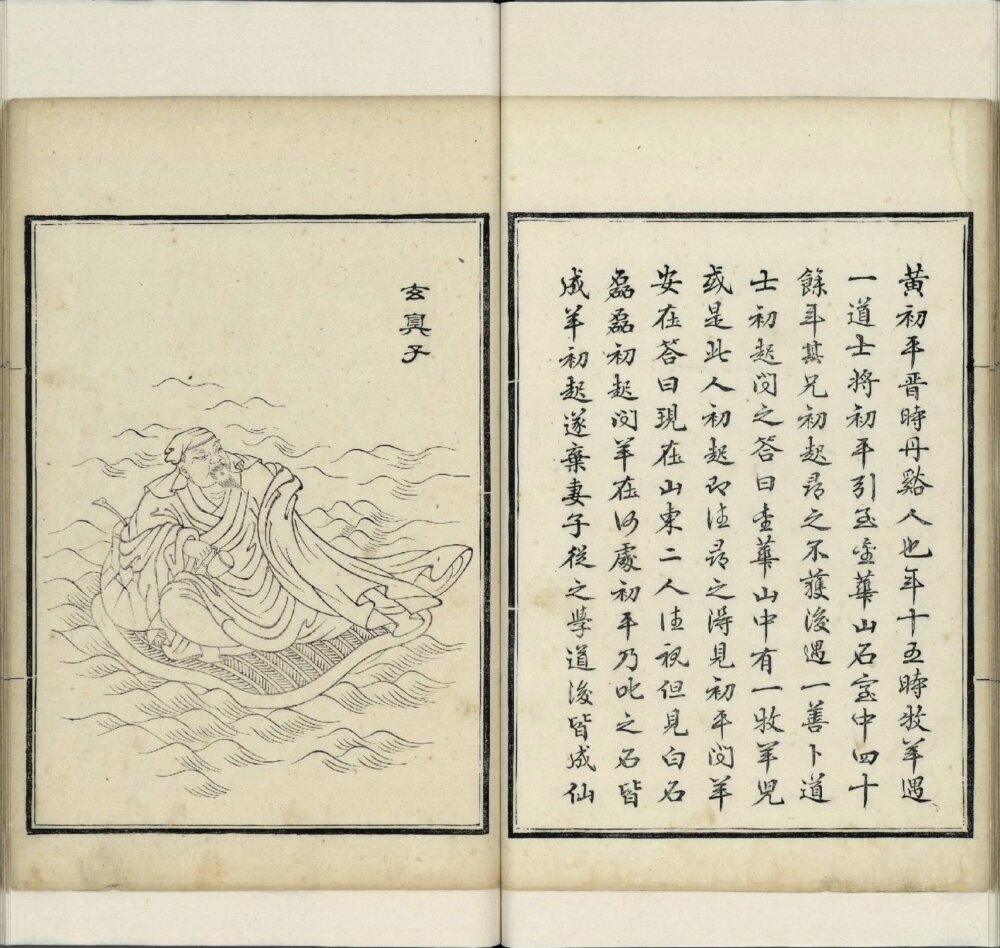 黃初平晋時丹谿人也年十五時牧羊遇
一道士將初平引至金華山石室中四十
餘年其兄初起尋之不獲後遇一善卜道
士初起問之答曰金華山中有一牧羊兒
或是此人初起即往尋之得見初平問羊
安在答曰現在山東二人往視但見白石
磊磊初起問羊在何處初平乃叱之石皆
成羊初起遂棄妻子從之學道後皆成仙
玄真子